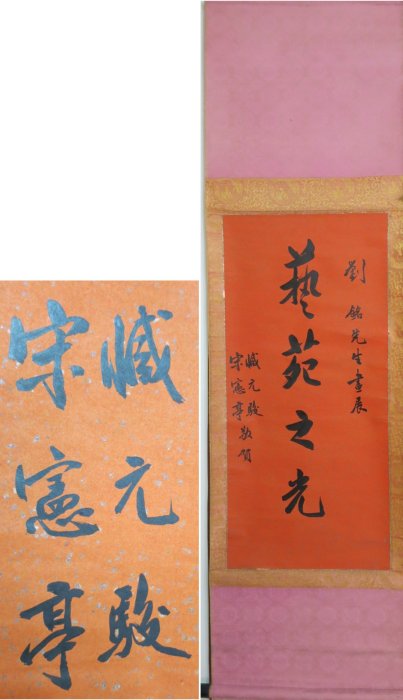 臧元駿
宋憲亭
劉銘先生畫展
藝苑之光
臧元駿
宋憲亭敬賀